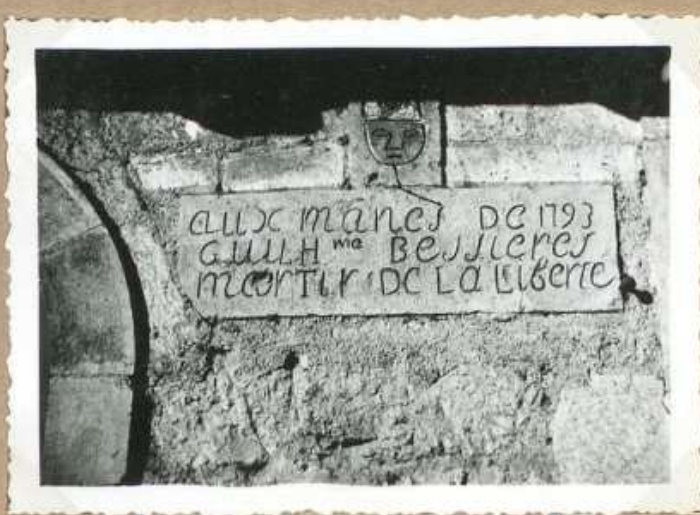 aux manes DE 1793
GUILHme BESSIERES
martir DE La LiBerte